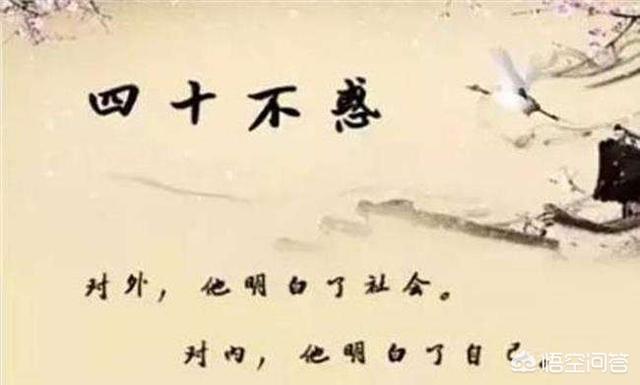 四十不惑
对外，他明白了社会。
对内，他明白了自己。
悟空问答